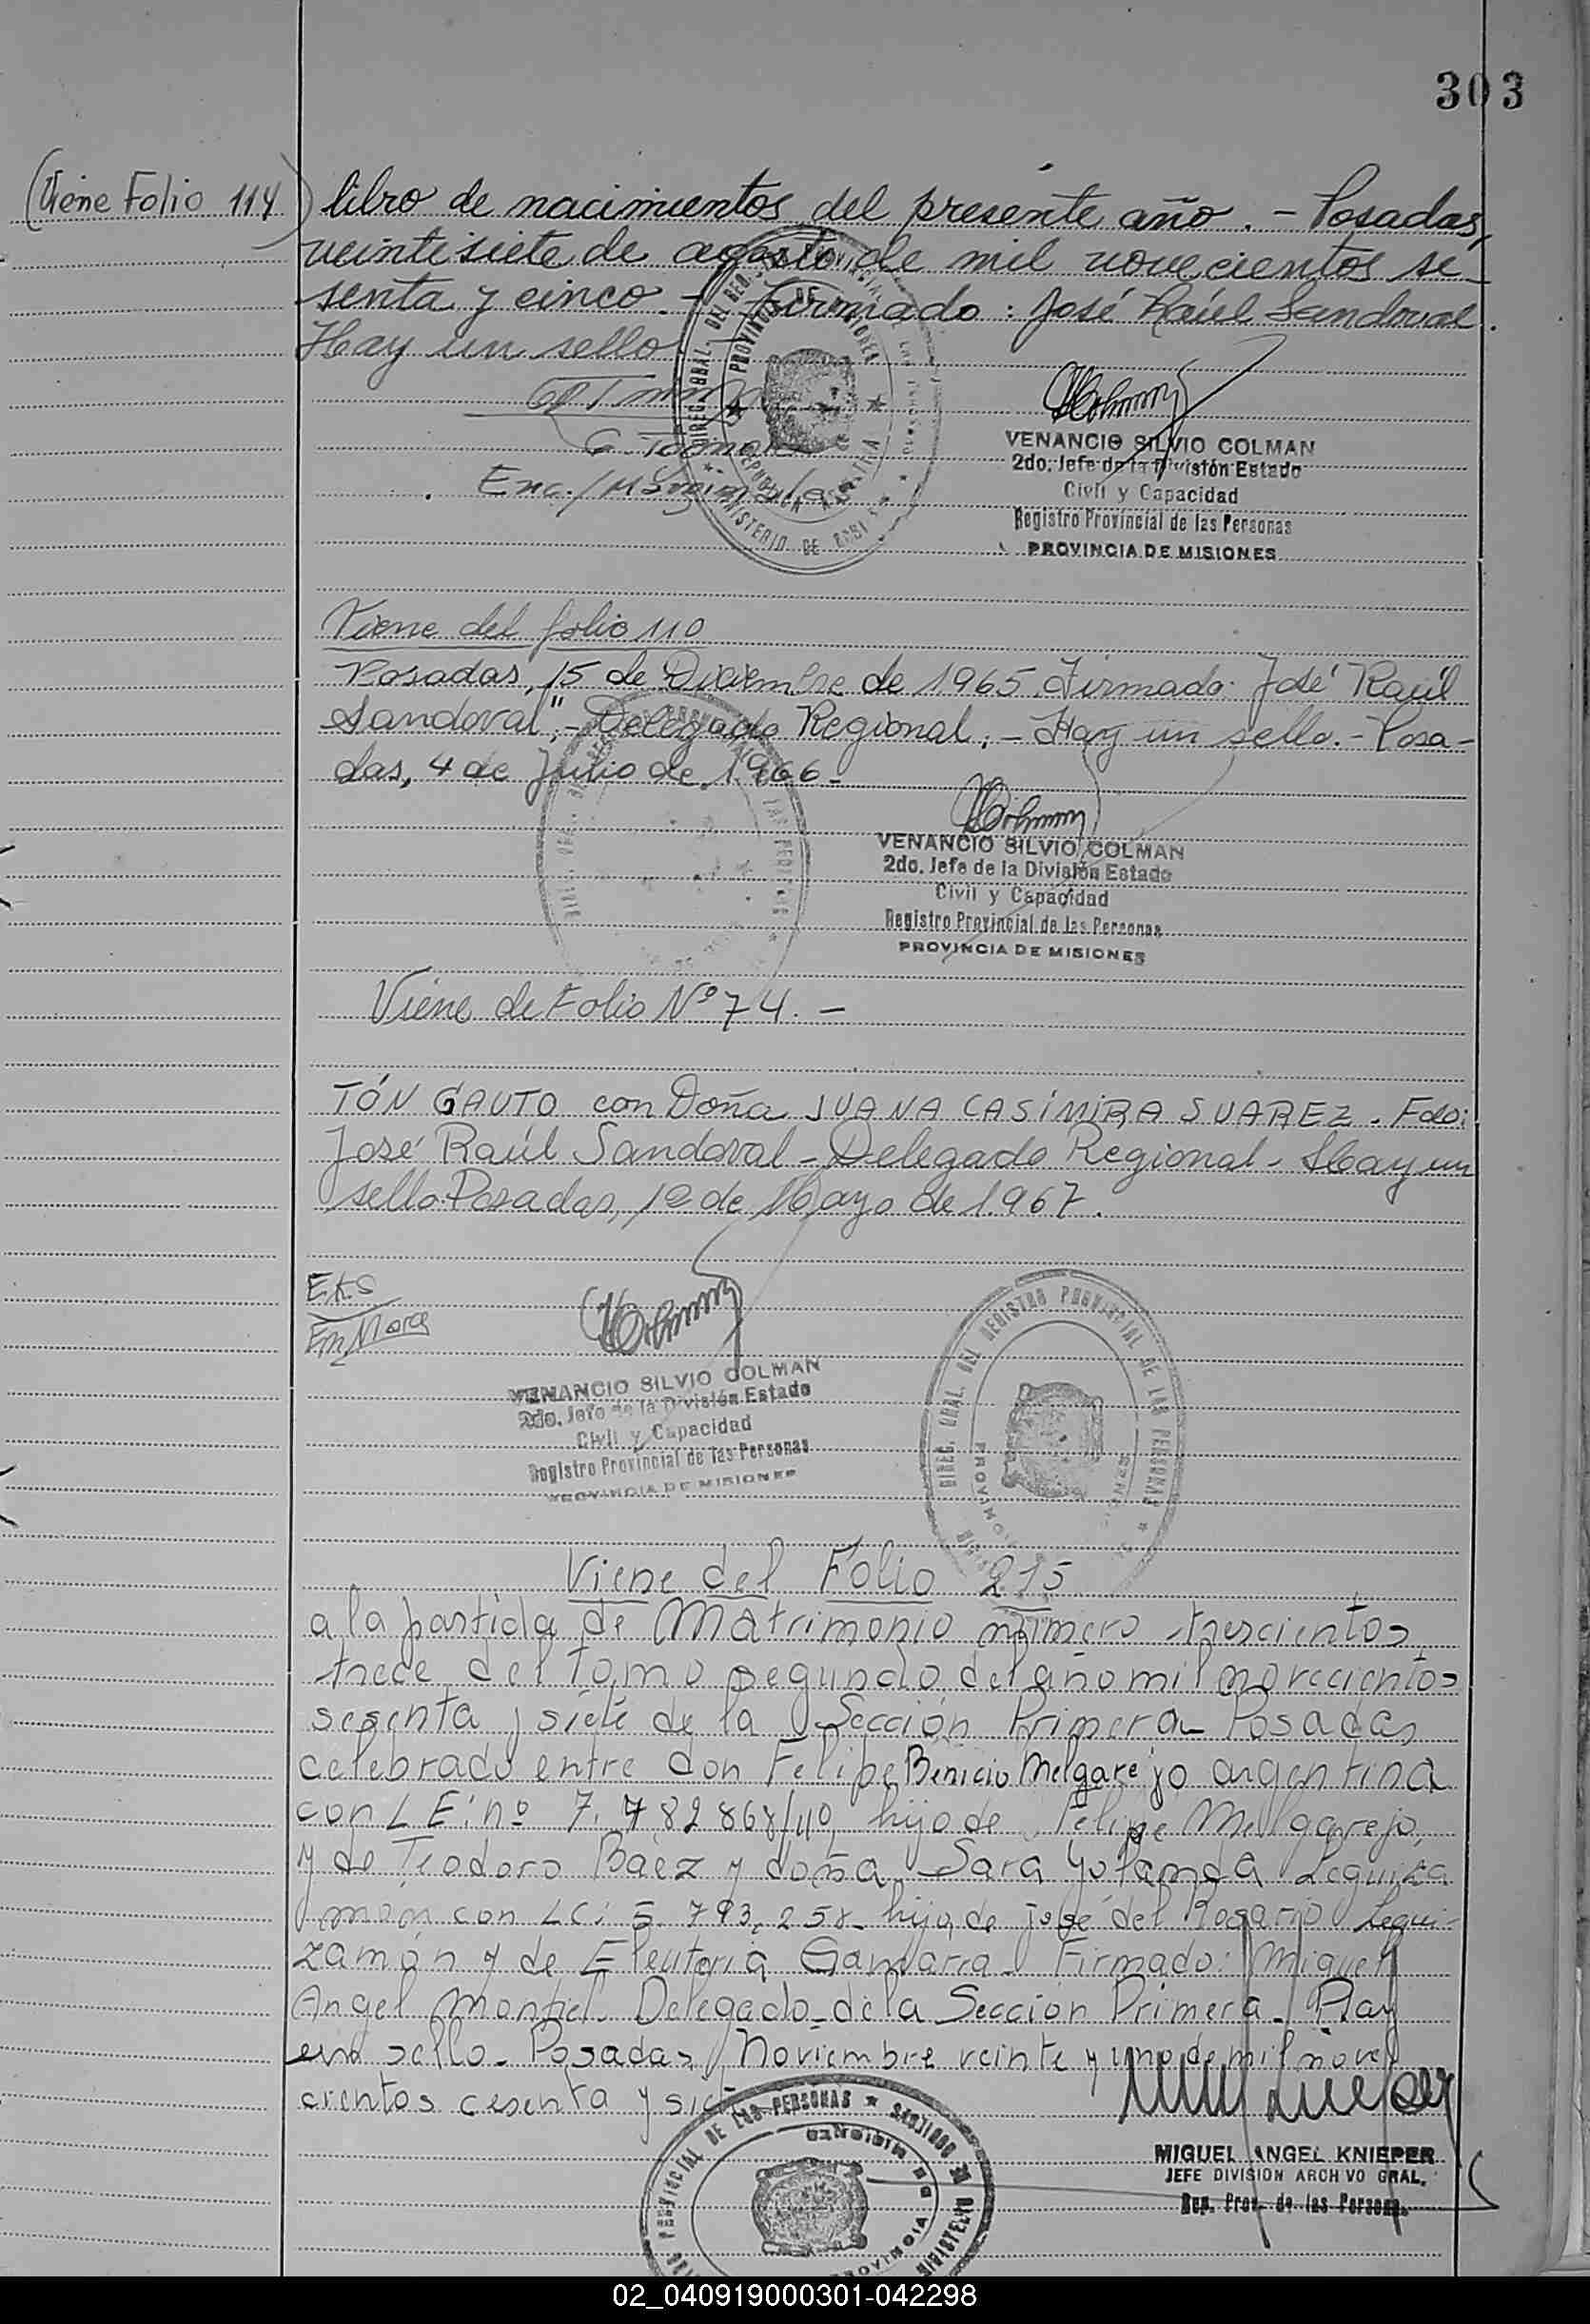 303
(Viene Folio 114)
libro de nacimientos del presente año. - Posadas,
veintisiete de agosto de mil novecientos se-
senta y cinco. - Firmado: José Raúl Sandoval.
Hay un sello
Enc./Marginales
VENANCIO SILVIO COLMAN
2do. Jefe de la División Estado
Civil y Capacidad
Registro Provincial de las Personas
PROVINCIA DE MISIONES
Viene del folio 110
Posadas, 15 de Diciembre de 1965. Firmado: José Raúl
Sandoval".- Delegado Regional.- Hay un sello.- Posa-
das, 4 de Julio de 1966-
VENANCIO SILVIO COLMAN
2do. Jefe de la División Estado
Civil y Capacidad
Registro Provincial de las Personas
PROVINCIA DE MISIONES
Viene de Folio Nº 74. -
TÓN GAUTO con Doña JUANA CASIMIRA SUAREZ. Fdo:
José Raúl Sandoval - Delegado Regional - Hay un
sello. Posadas, de Mayo de 1.967.
VENANCIO SILVIO COLMAN
2do. Jefe de la División Estado
Civil y Capacidad
Registro Provincial de las Personas
PROVINCIA DE MISIONES
DIREC. GRAL. DEL REGISTRO PROVINCIAL DE LAS PERSONAS
Viene del Folio 215
a la partida de Matrimonio número trescientos
trece del Tomo segundo del año mil novecientos
sesenta y siete de la Sección Primera Posadas
celebrado entre don Felipe Benicio Melgarejo argentina
con L E: nº 7. 782 868/40, hijo de Felipe Melgarejo
y de Teodoro Báez y doña Sara Yolanda Leguiza
món con LC: 5. 793. 258. hija de josé del Rosario Legui-
zamón y de Eleuteria Gamarra. Firmado: Miguel
Angel Montiel. Delegado de la Sección Primera. Hay
un sello. Posadas, Noviembre veinte y uno de mil nove
cientos cesenta y siete
PROVINCIAL DE LAS PERSONAS
MIGUEL ANGEL KNIEPER
JEFE DIVISION ARCHIVO GRAL.
Reg. Prov. de las Personas
02_040919000301-042298